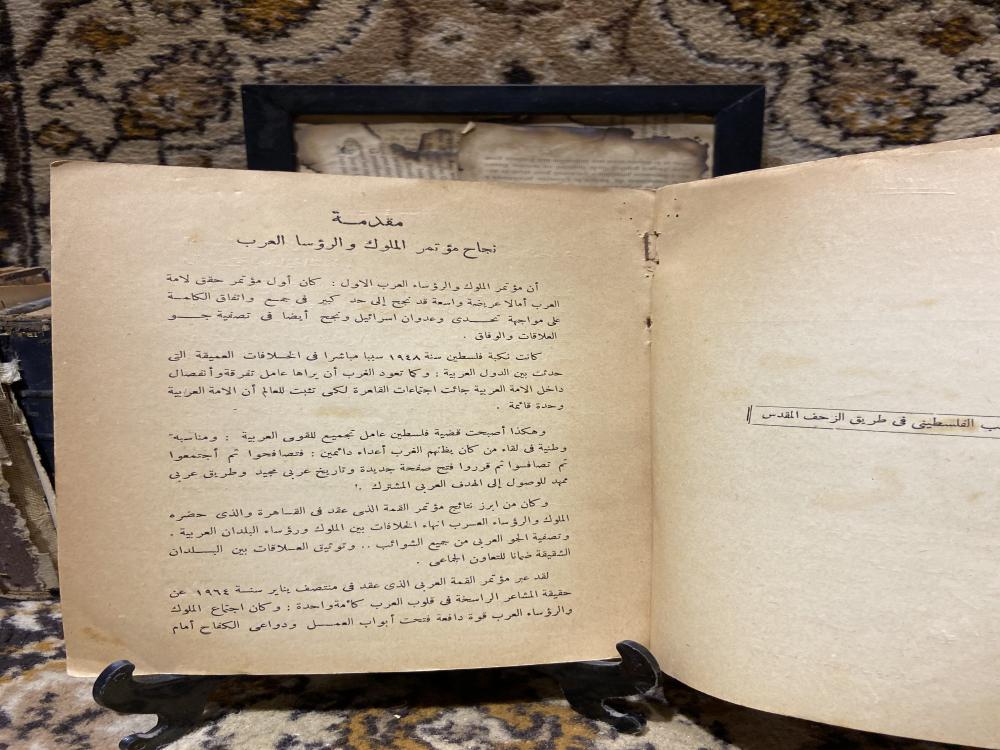 ب الفلسطيني في طريق الزحف المقدس
مقدمـــة
نجاح مؤتمر الملوك والرؤسا العرب
أن مؤتمر الملوك والرؤساء العرب الاول : كان أول مؤتمر حقق لامة
العرب أمالا عريضة واسعة قد نجح إلى حد كبير فى جمع واتفاق الكلمـة
على مواجهة تحـــدى وعدوان اسرائيل ونجح أيضا فى تصفية جـــو
العلاقات والوفاق .
كانت نكبة فلسطين سنة ١٩٤٨ سببا مباشرا فى الخـلافات العميقة التى
حدثت بين الدول العربية : وكما تعود الغرب أن يراها عامل تفرقة وأنفصال
داخل الامة العربية جائت اجتماعات القاهرة لكى تثبت للعالم أن الامة العربية
وحدة قائمة .
وهكذا أصبحت قضية فلسطين عامل تجميع للقوى العربية : ومناسبة
وطنية فى لقاء من كان يظنهم الغرب أعداء دائمين : فتصافحوا ثم أجتمعوا
ثم تصافسوا ثم قرروا فتح صفحة جديدة وتاريخ عربى مجيد وطريق عربى
ممهد للوصول إلى الهدف العربى المشترك .
وكان من ابرز نتائج مؤتمر القمة الذى عقد فى القـاهرة والذى حضره
الملوك والرؤساء العـرب انهاء الخلافات بين الملوك ورؤساء البلدان العربية .
وتصفية الجو العربى من جميع الشوائب .. وتوثيق العـلاقات بين البـــلدان
الشقيقة ضمانا للتعاون الجماعى .
لقد عبر مؤتمر القمة العربى الذى عقد فى منتصف يناير سنـة ١٩٦٤ عن
حقيقة المشاعر الراسخة فى قلوب العرب كأمة واحدة : وكان اجتماع الملوك
والرؤساء العرب قوة دافعة فتحت أبواب العمـــل ودواعى الكفاح أمام